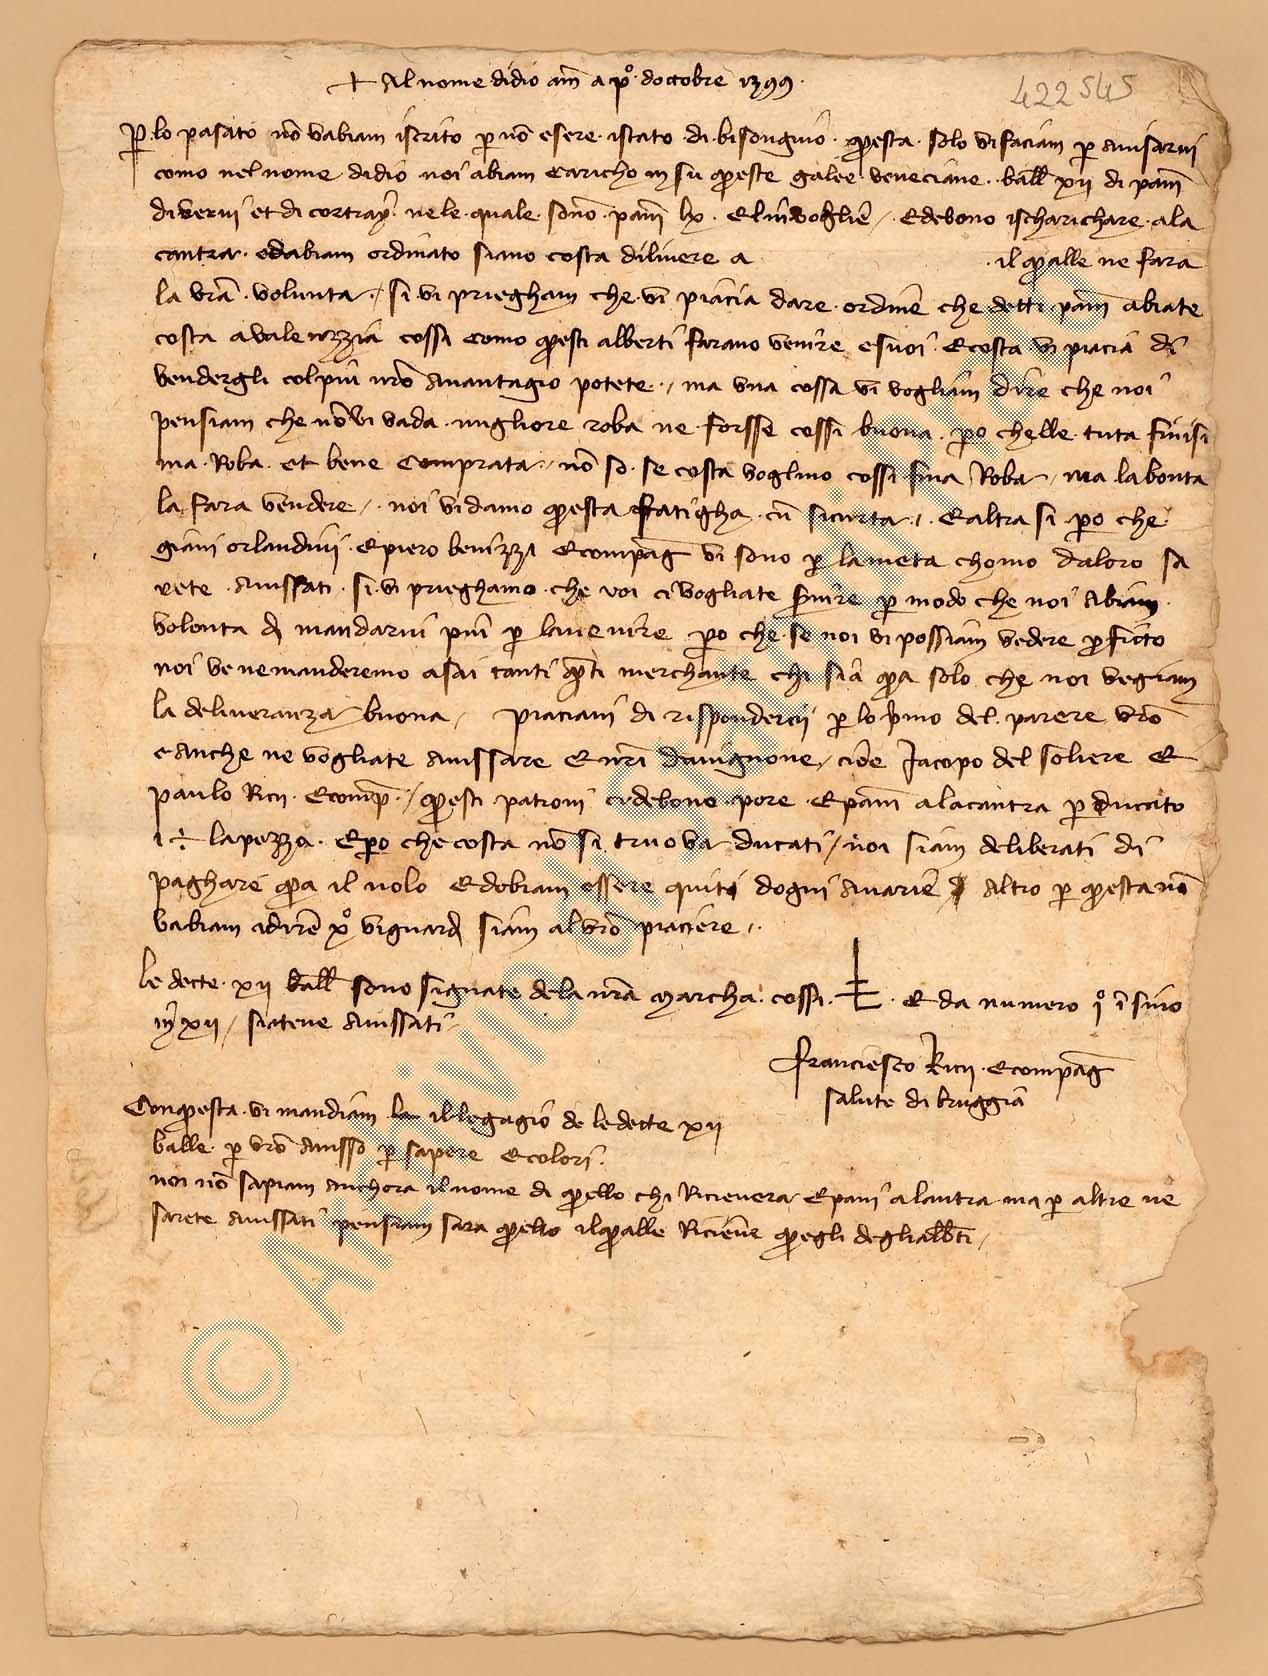 422545
✝ Al nome didio am̃ a pº doctobre 1399
P lo pasato nõ vabiam iscrito p nõ esere istato di bisongnio questa solo vi faciam p avisarvi
como nel nome didio noi abiam caricho in su queste galee veneciane ball xii di pañi
di vervi et di cortray nele quale sono pañ lx e linvoglie / e debono ischarichare ala
cantra edabiam ordinato siano costa dilivere a il qualle ne fara
la vrã volunta / si vi priegham che vi piacia dare ordine che detti pañ abiate
costa a valenzzia cossi como questi alberti farano venire e suoi e costa vi piacia di
vendergli col piu nrõ avantagio potete / ma una cossa vi vogliam dire che noi
pensiam che nõ vi vada migliore roba ne forsse cossi buona po chelle tuta finisi
ma Roba et bene comprata / nõ so se costa voglino cossi fina Roba / ma la bonta
la fara vendere / noi vi damo questa fatigha cũ sicurta / e altra si po che
giani orlandini e piero benizzi e compag vi sono p la meta chomo daloro sa
rete avissati si vi prieghamo che voi ci vogliate servire p modo che noi abiam
volonta di mandarvi piu p lavenire po che se noi vi possiam vedere profitto
noi ve ne manderemo asai tanti quãti merchante chi sia qua solo che noi vegiam
la deliveranza buona / piaciavi di rispondercii p lo primo del parere vrõ
e anche ne vogliate avissare e nrĩ davignone / cioe Jacopo del soliere e
paulo Ricii e comp / questi patroni ci debono pore e pañi a la cantra p ducato
i ÷ la pezza e po che costa nõ si truova ducati / noi siam deliberati di
paghare qua il nolo e dobiam essere quiti dogni avarie altro p questa nõ
vabiam adire xº vi guardi siam al vrõ piaciere /
Le decte xii ball sono signate de la nrã marcha cossi e da numero iº ĩ sino
in xii / siatene avissati
franciesco Ricii e compag
salute di bruggia
Con questa vi mandiam il legagio de le decte xii
balle p vrõ avisso p sapere e colori
noi nõ sapiam anchora il nome di quello chi Ricievera e pani a lantra ma p altre ne
sarete avissati pensiam sara quello il qualle Ricieve quegli degli albti /
© Archivio di Stato di Prato